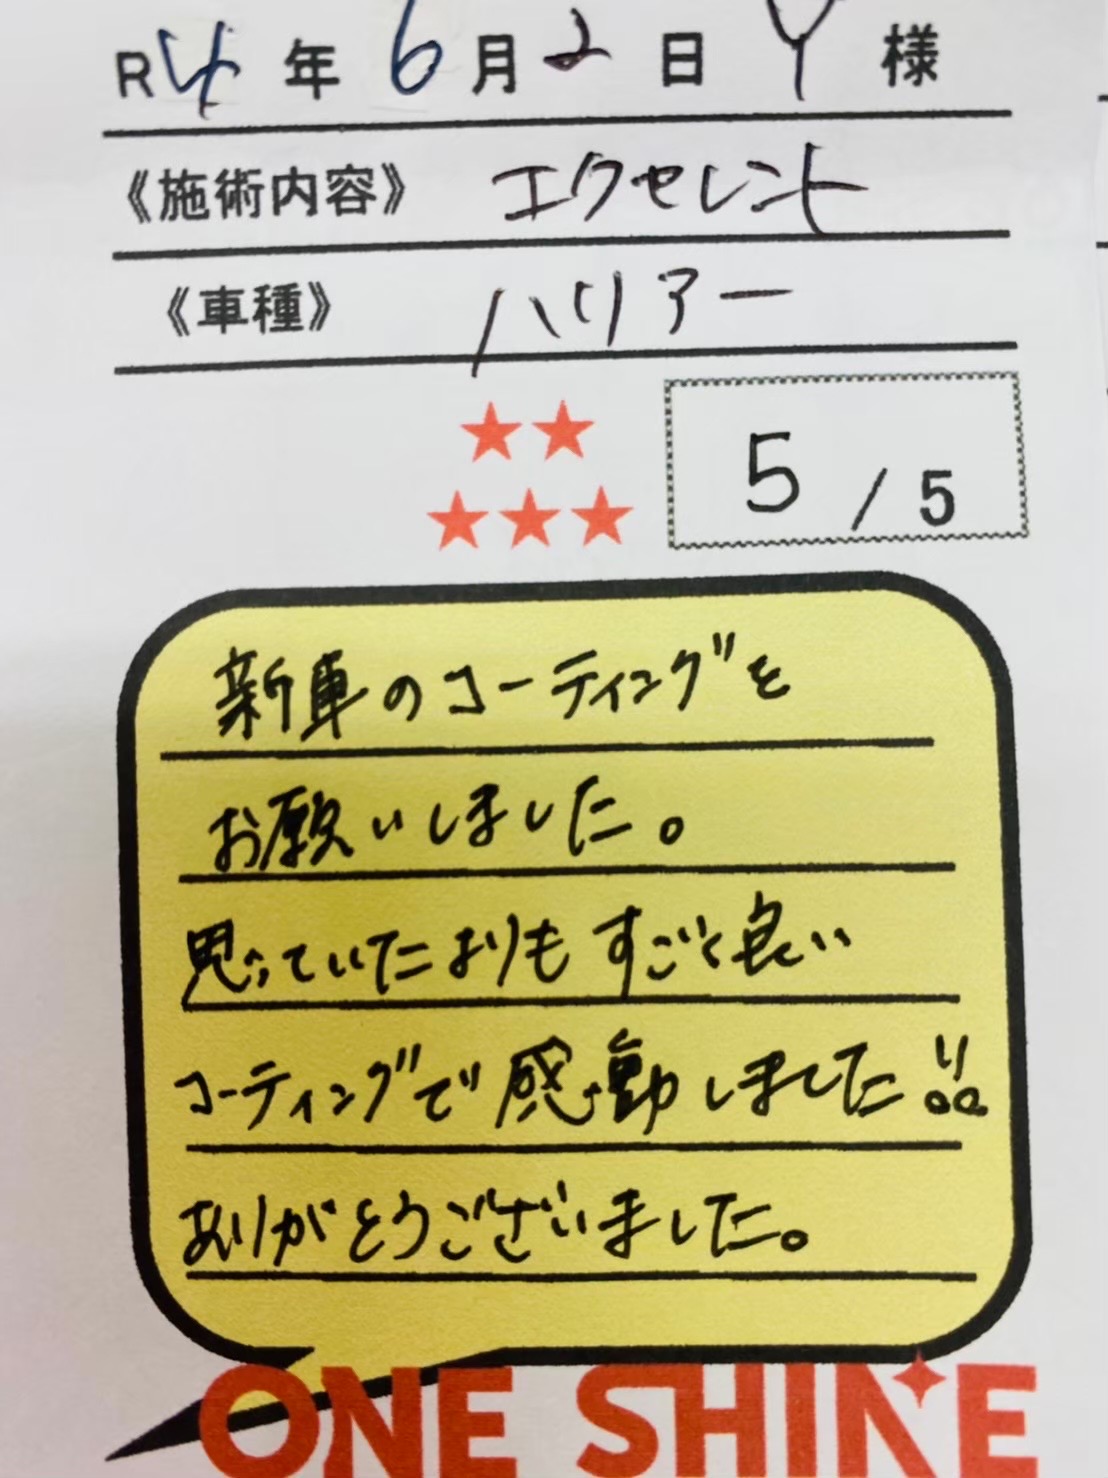 R4年6月2日 Y様
《施術内容》 エクセレント
《車種》 ハリアー
★★
★★★
5/5
新車のコーティングを
お願いしました。
思っていたよりもすごく良い
コーティングで感動しました!!
ありがとうございました。
ONE SHINE